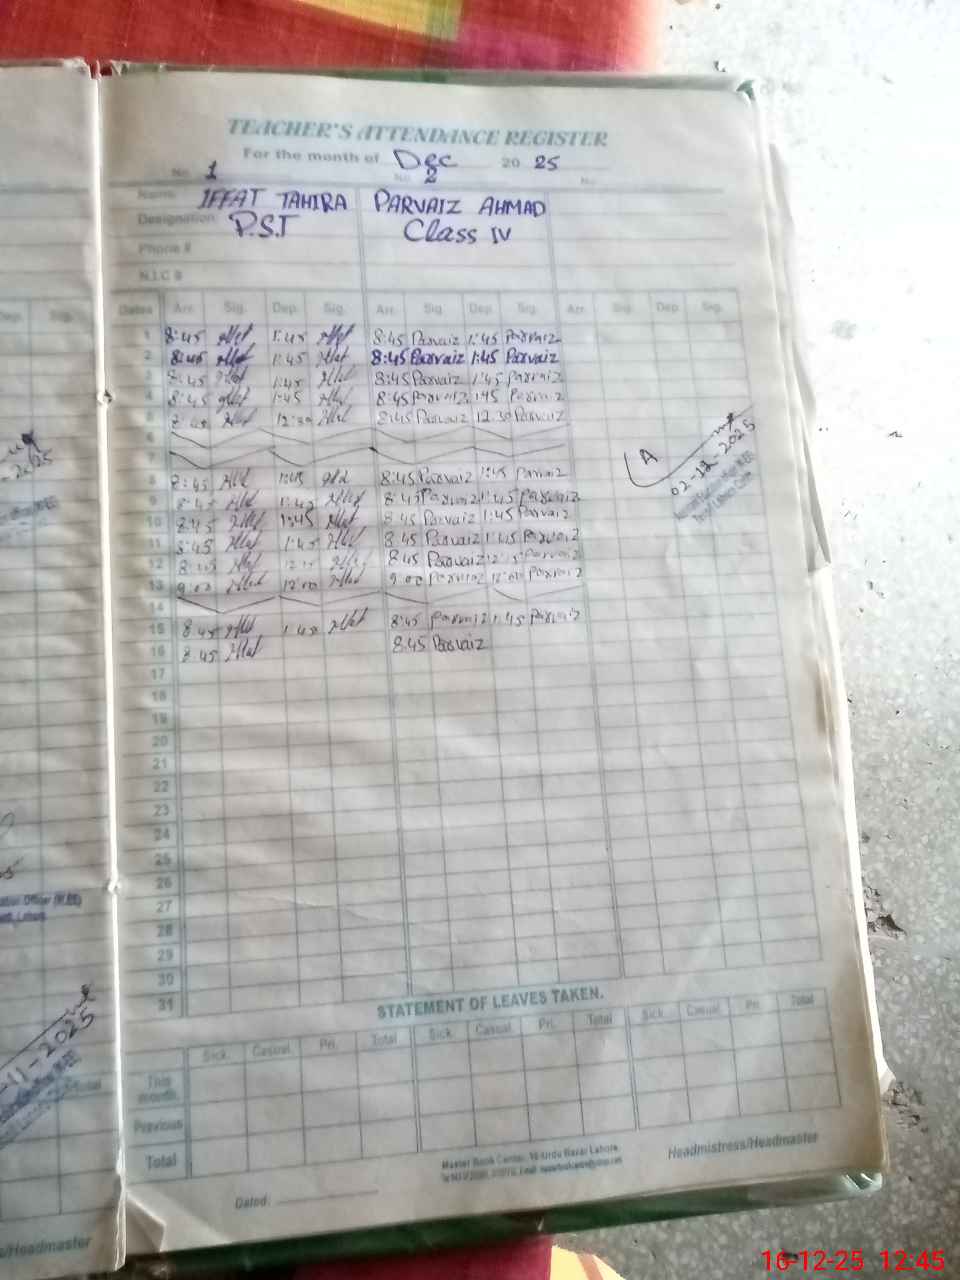 TEACHER'S ATTENDANCE REGISTER
For the month of Dec 20 25
No. 1 No. 2 No.
Name IFFAT TAHIRA PARVAIZ AHMAD
Designation P.S.T Class IV
Phone #
N.I.C #
Dates Arr. Sig. Dep. Sig. Arr. Sig. Dep. Sig. Arr. Sig. Dep. Sig.
1 8:45 1:45 8:45 Parvaiz 1:45 Parvaiz
2 8:45 1:45 8:45 Parvaiz 1:45 Parvaiz
3 8:45 1:45 8:45 Parvaiz 1:45 Parvaiz
4 8:45 1:45 8:45 Parvaiz 1:45 Parvaiz
5 8:45 12:30 8:45 Parvaiz 12:30 Parvaiz
6
7
8 8:45 1:45 8:45 Parvaiz 1:45 Parvaiz
9 8:45 1:45 8:45 Parvaiz 1:45 Parvaiz
10 8:45 1:45 8:45 Parvaiz 1:45 Parvaiz
11 8:45 1:45 8:45 Parvaiz 1:45 Parvaiz
12 8:45 Parvaiz Parvaiz
13 9:00 12:00 9:00 Parvaiz 12:00 Parvaiz
14
15 8:45 1:45 8:45 Parvaiz 1:45 Parvaiz
16 8:45 8:45 Parvaiz
17
18
19
20
21
22
23
24
25
26
27
28
29
30
31
A
02-12-2025
STATEMENT OF LEAVES TAKEN.
Sick. Casual. Pri. Total Sick. Casual. Pri. Total Sick. Casual. Pri. Total
This month.
Previous
Total
Master Book Center, 16-Urdu Bazar Lahore.
Headmistress/Headmaster
Dated:
-11-2025
s/Headmaster
16-12-25 12:45